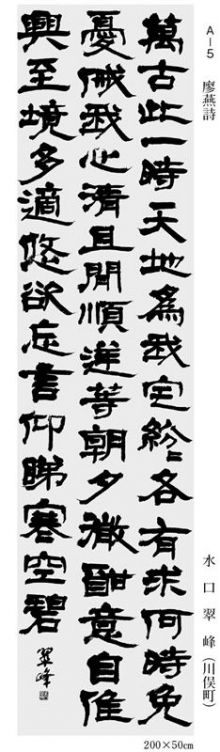 A-5 廖燕詩
萬古此一時天地爲我宅紛〻各有求何時免
憂戚我心清且閒順逆等朝夕微酣意自佳
興至境多適悠欲忘言仰睇寒空碧
翠峰
水口翠峰(川俣町)
200×50cm